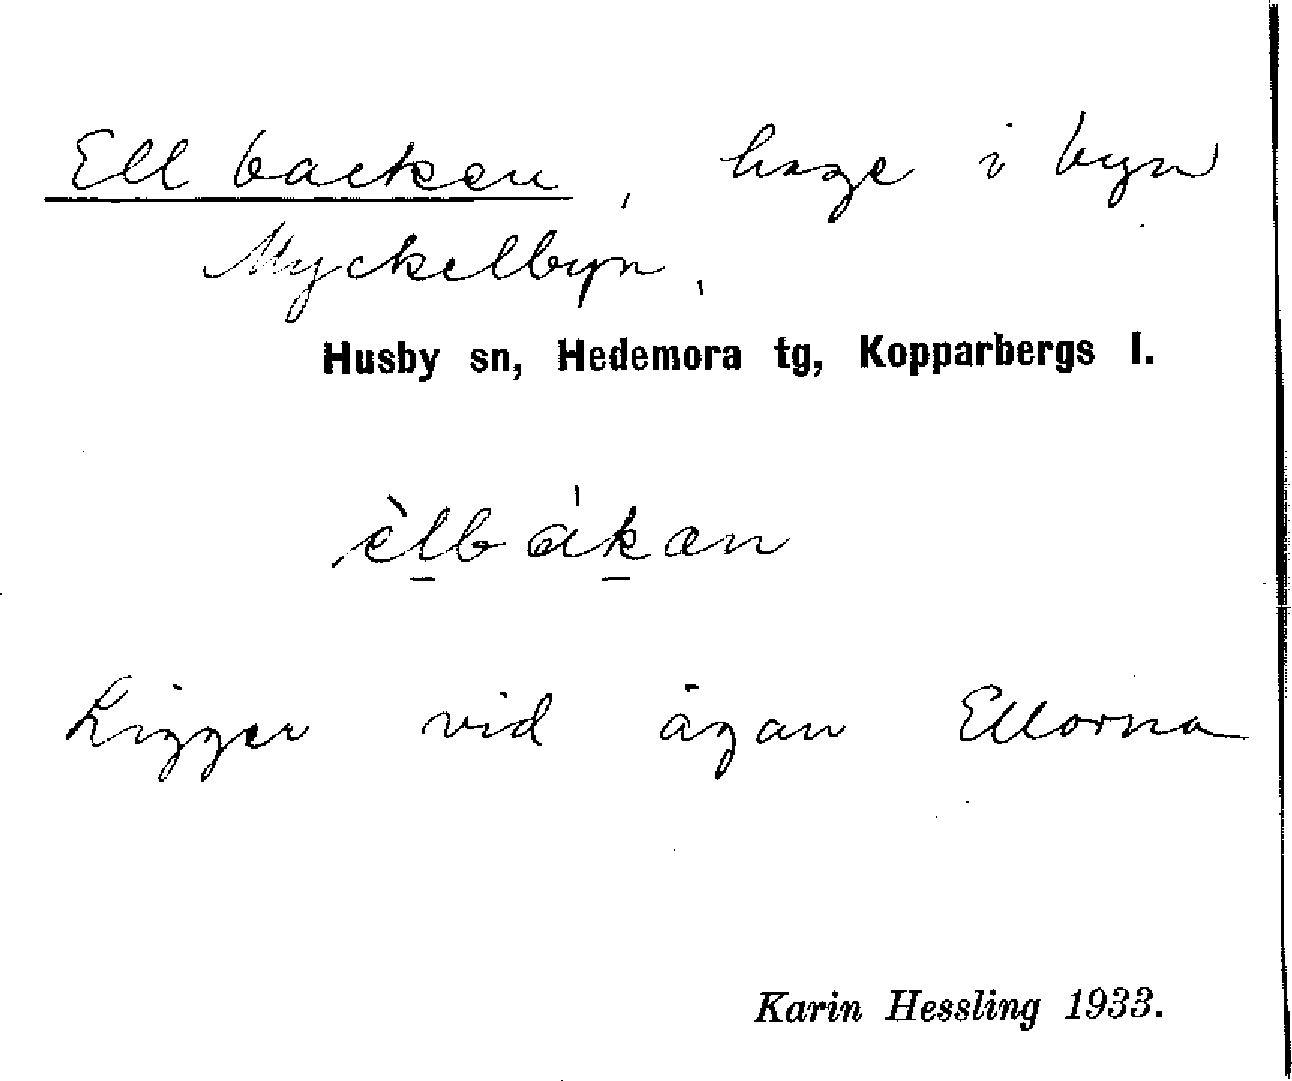 Ellbacken, hage i byn
Myckelbyn.
Husby sn, Hedemora tg, Kopparbergs l.
èlbákan
Ligger vid ägan Ellorna
Karin Hessling 1933.